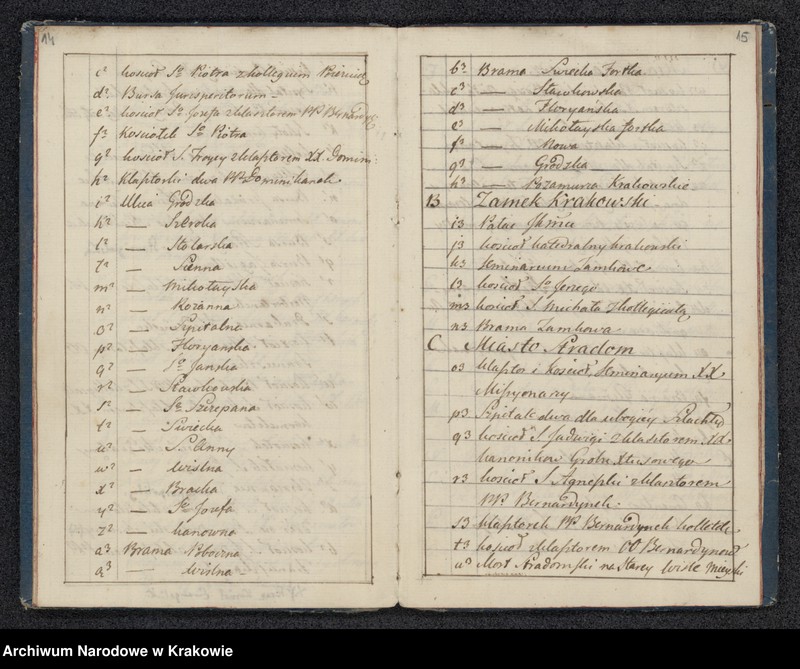 14
c² kościół Sº Piotra z kollegium
d² Bursa Jurisperitorum
e² kościół Sº Józefa z klasztorem PP. Bernardy:
f² Kościołek Sº Piotra
g² kościół S. Troycy z klasztorem XX. Domini:
h² klasztorki dwa PP. Dominikanek
i² Ulica Grodzka
k² — Szeroka
l² — Stolarska
ł² — Sienna
m² — Mikołayska
n² — Rożanna
o² — Szpitalna
p² — Floryańska
q² — Sº Jańska
r² — Sławkowska
s² — Sº Szczepana
t² — Swiecka
u² — S. Anny
w² — Wislna
x² — Bracka
y² — Sº Jozefa
z² — kanowna
a³ Brama Poboczna
ą³ — Wislna
15
b³ Brama Swiecka Fortka
c³ — Sławkowska
d³ — Floryańska
e³ — Mikołayska fortka
f³ — Nowa
g³ — Grodzka
h³ — Pozamurza Krakowskie
B Zamek Krakowski
i³ Pałac
j³ kościoł katedralny krakowski
k³ Seminarium Zamkowe
l³ kościoł Sº Jerzego
m³ kościoł S. Michała z kollegiatą
n³ Brama Zamkowa
C Miasto Stradom
o³ klasztor i kościoł, Seminaryum XX.
Missyonarzy
p³ Szpitale dwa dla ubogiey Szlachty
q³ kościoł S. Jadwigi z klasztorem XX.
kanonikow Grobu Xtusowego
r³ kościoł S. Agnieszki z klasztorem
PP. Bernardynek
s³ klasztorek PP. Bernardynek kolletek
t³ kościoł z klasztorem OO Bernardynow
u³ Most Stradomski na Starey Wisle mieyski
Archiwum Narodowe w Krakowie